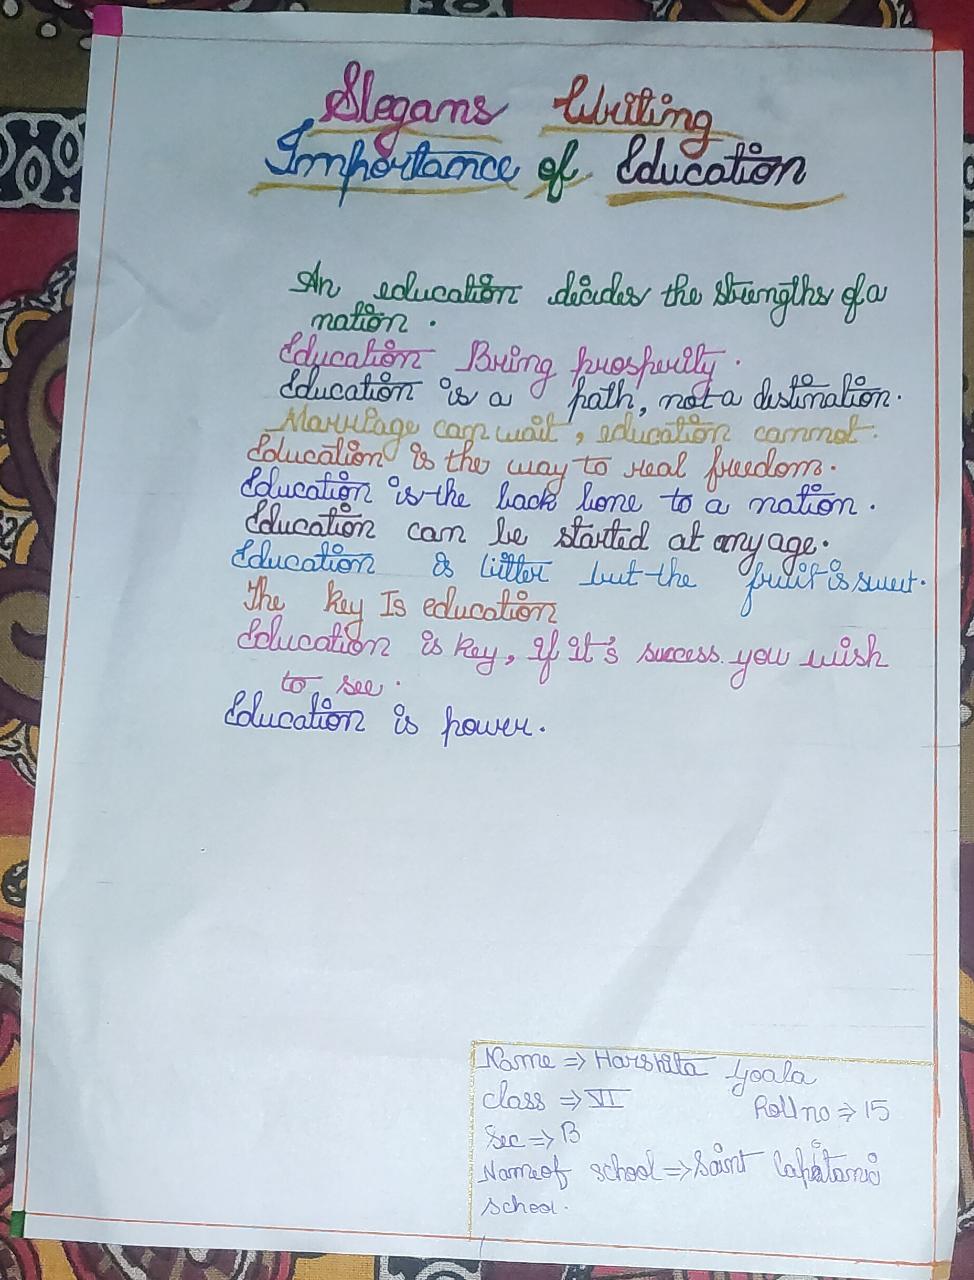 Slogans Writing
Importance of Education
An education decides the strengths of a
nation.
Education Bring prosperity.
Education is a path, not a destination.
Marriage can wait, education cannot.
Education is the way to real freedom.
Education is the back bone to a nation.
Education can be started at any age.
Education is bitter but the fruit is sweet.
The key Is education
Education is key, if it's success you wish
to see.
Education is power.
Name ⇒ Harshita Goala
Class ⇒ VI Roll no ⇒ 15
Sec ⇒ B
Name of school ⇒ Saint Capitanio
School.